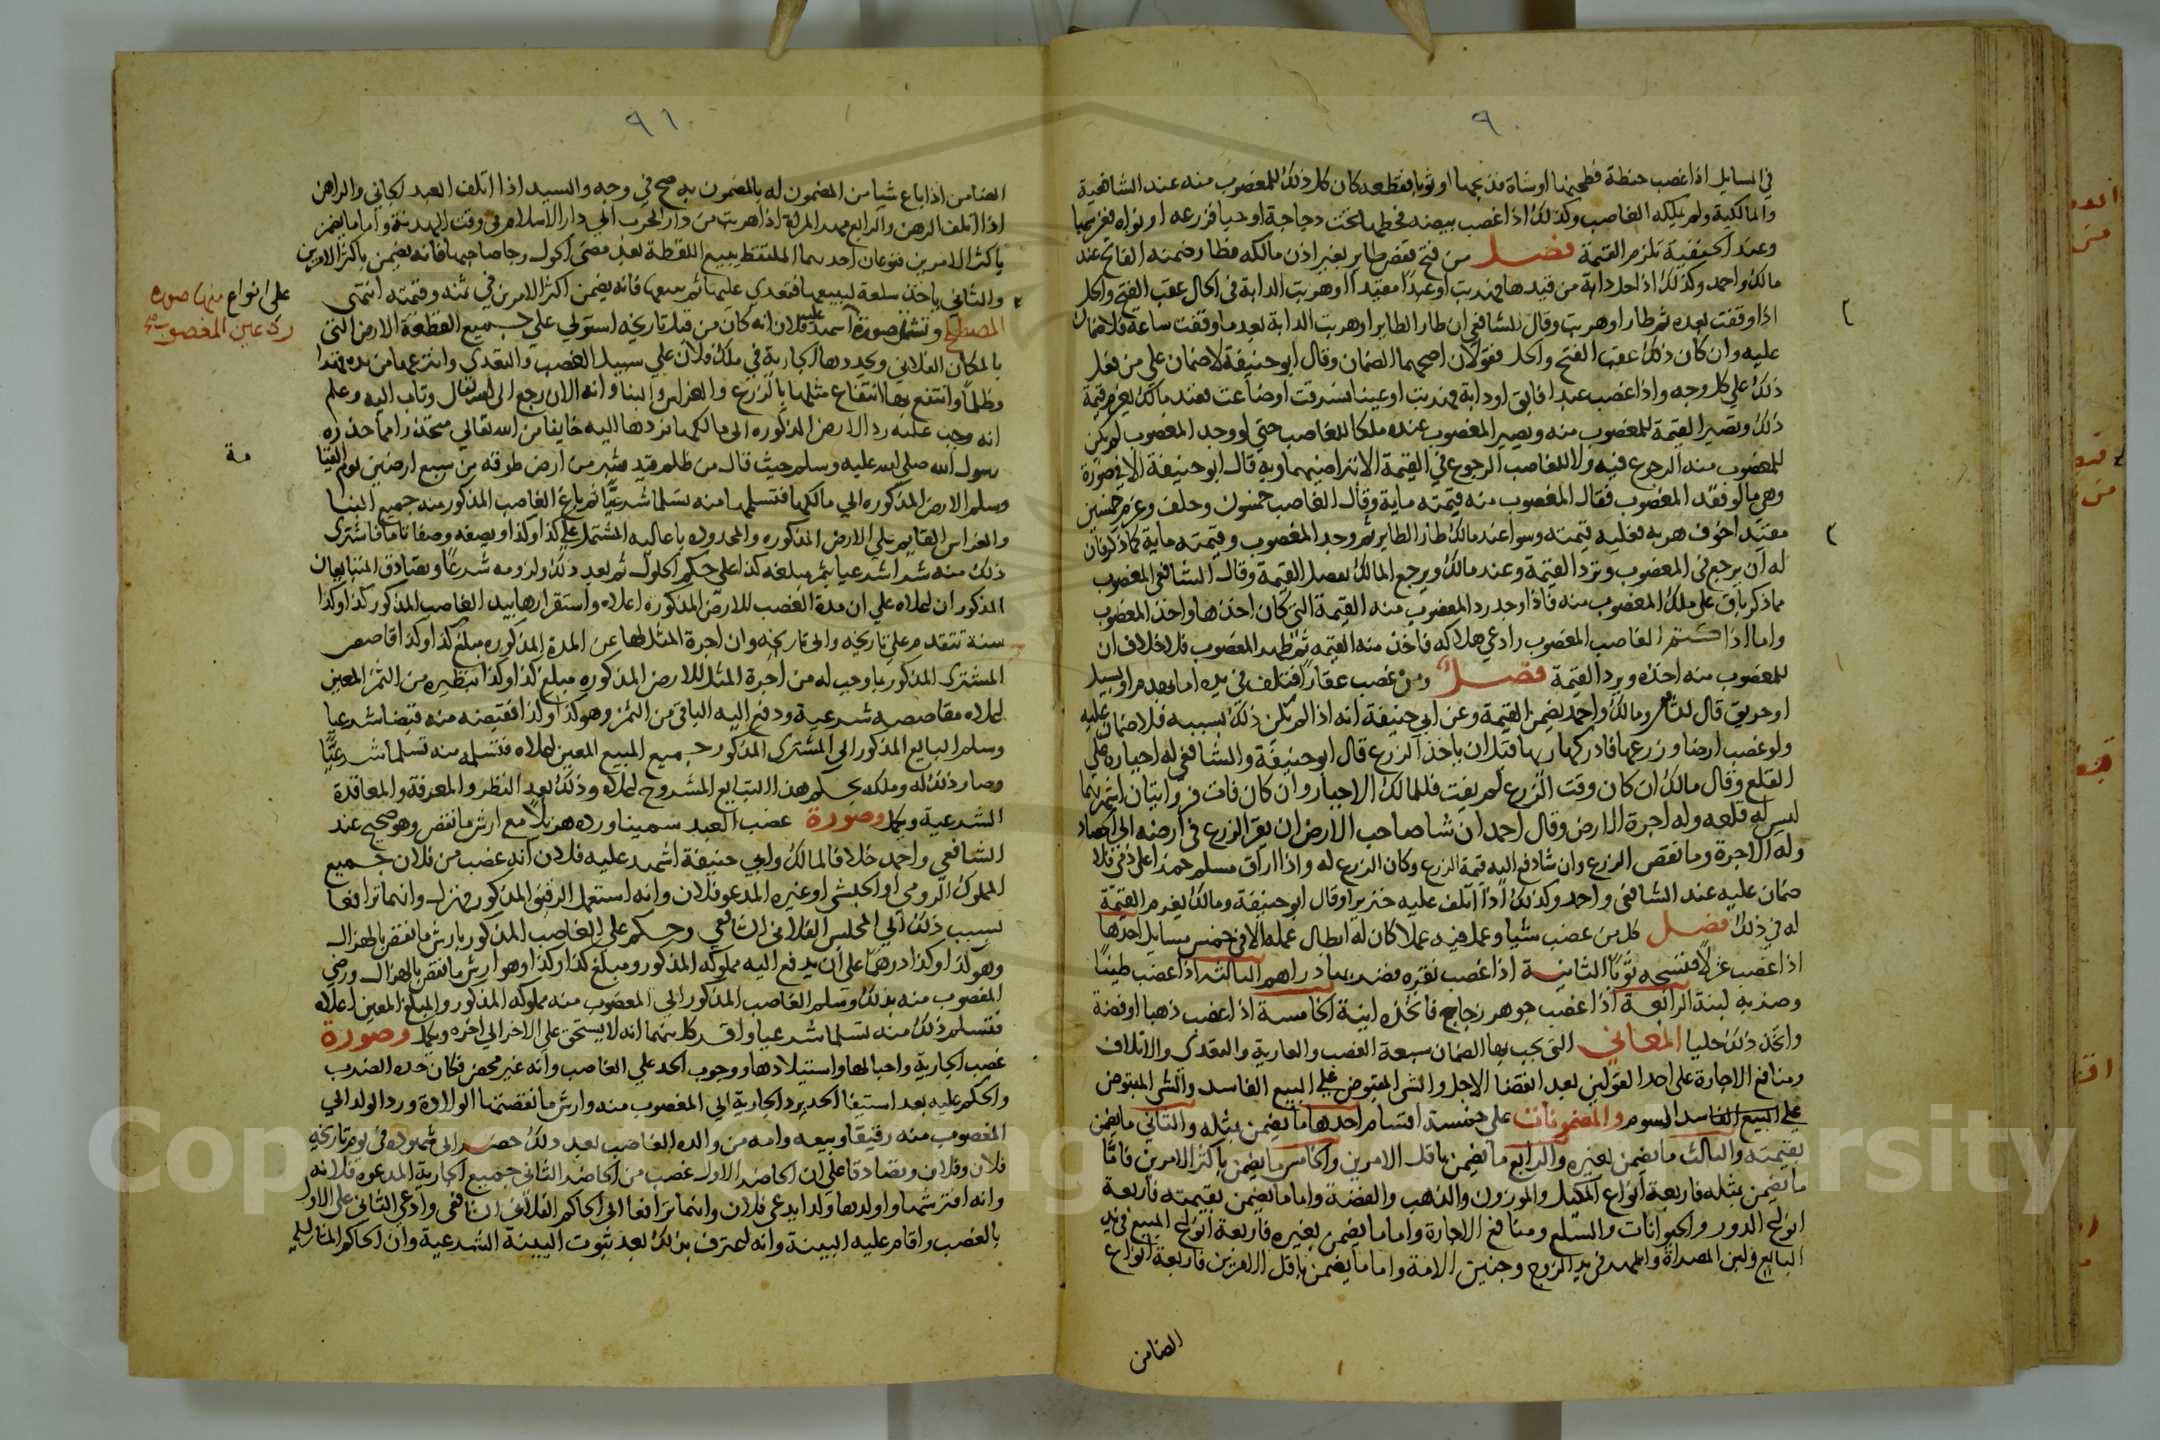 ٩٠
في المسايل اذا غصب حنطة فطحنها او شاة فذبحها او ثوبا فقطعه كان كل ذلك للمغصوب منه عند الشافعية
والمالكية ولم يملكه الغاصب وكذلك اذا غصب بيضه فحضنها تحت دجاجة او حبا فزرعه او نواه فغرسها
وعند الحنفية تلزم القيمة فصل من فتح قفص طاير بغير اذن مالكه فطار ضمنه الفاتح عند
مالك واحمد وكذلك اذا حل دابة من قيدها فهربت او عبدا مقيدا او هربت الدابة في الحال عقب الفتح والحل
اذا وقفت بعده ثم طار او هربت وقال الشافعي ان طار الطاير او هربت الدابة بعد ما وقفت ساعة فلا ضمان
عليه وان كان ذلك عقب الفتح والحل فقولان اصحهما الضمان وقال ابو حنيفة لا ضمان علي من فعل
ذلك علي كل وجه واذا غصب عبدا فابق او دابة فهربت او عينا فسرقت او ضاعت فعند مالك يغرم قيمة
ذلك وتصير القيمة للمغصوب منه ويصير المغصوب عنده ملكا للغاصب حتي لو وجد المغصوب لم يكن
للمغصوب منه الرجوع فيه ولا للغاصب الرجوع في القيمة الا بتراضيهما وبه قال ابو حنيفة الا في صورة
وهي ما لو فقد المغصوب فقال المغصوب منه قيمته ماية وقال الغاصب خمسون وحلف وغرم خمسين
له ان يرجع في المغصوب وترد القيمة وعند مالك ويرجع المالك بفضل القيمة وقال الشافعي المغصوب
مما ذكر باق علي ملك المغصوب منه فاذا وجد رد المغصوب منه القيمة التي كان اخذها واخذ المغصوب
واما اذا كتم الغاصب المغصوب وادعي هلاكه فاخذ منه القيمه ثم ظهر المغصوب فلا خلاف ان
للمغصوب منه اخذه ويرد القيمة فصل ومن غصب عقارا فتلف في يده اما بهدم او بسيل
او حريق قال الشافعي ومالك واحمد يضمن القيمة وعن ابي حنيفة انه اذا لم يكن ذلك بسببه فلا ضمان عليه
ولو غصب ارضا وزرعها فادركها ربها قبل ان ياخذ الزرع قال ابو حنيفة والشافعي له اجباره علي
القلع وقال مالك ان كان وقت الزرع لم يفت فللمالك الاجبار وان كان فات فروايتان اشهرهما
ليس له قلعه وله اجرة الارض وقال احمد ان شا صاحب الارض ان يقر الزرع في ارضه الي الحصاد
وله الاجرة وما نقص الزرع وان شا دفع اليه قيمة الزرع وكان الزرع له واذا اراق مسلم خمرا علي ذمي فلا
ضمان عليه عند الشافعي واحمد وكذلك اذا اتلف عليه خنزيرا وقال ابو حنيفة ومالك يغرم القيمة
له في ذلك فصل كل من غصب شيا وعمل فيه عملا كان له ابطال عمله الا في خمس مسايل احدها
اذا غصب غزلا فنسجه ثوبا الثانية اذا غصب نقرة فضربها دراهم الثالثه اذا غصب طينا
وضربه لبنة الرابعة اذا غصب جوهر زجاج فاتخذه ابنية الخامسة اذا غصب ذهبا او فضة
واتخذ ذلك حليا المعاني التي يجب بها الضمان سبعة الغصب والعارية والتعدي والاتلاف
ومنافع الاجارة علي احد القولين بعد انقضا الاجل والشي المقبوض علي البيع الفاسد والشي المقبوض
علي البيع الفاسد السوم والمضمونات علي خمسة اقسام احدها ما يضمن بمثله والثاني ما يضمن
بقيمته والثالث ما يضمن بغيره والرابع ما يضمن باقل الامرين والخامس ما يضمن باكثر الامرين فاما
ما يضمن بمثله فاربعة انواع المكيل والموزون والذهب والفضة واما ما يضمن بقيمته فاربعة
انواع الدور والحيوانات والسلع ومنافع الاجارة واما ما يضمن بغيره فاربعة انواع المبيع في يد
البايع ولبن المصراة والمهر في يد الزوج وجنين الامة واما ما يضمن باقل الامرين فاربعة انواع
الضامن
٩١
الضامن اذا باع شيا من المضمون له بالمضمون به صح في وجه والسيد اذا اتلف العبد الجاني والراهن
اذا اتلف الرهن والرابع مهر المراة اذا هربت من دار الحرب الي دار الاسلام في وقت الهدنة واما ما يضمن
باكثر الامرين فنوعان احدهما الملتقط يبيع اللقطة بعد مضي الحول وجا صاحبها فانه يضمن باكثر الامرين
والثاني ياخذ سلعة ليبيعها فتعدي عليها ثم يبيعها فانه يضمن اكثر الامرين في ثمنه وقيمته انتهي
المصطلح وتشتمل علي صورة اشهد فلان انه كان من قبل تاريخه استولي علي جميع القطعة الارض التي
علي انواع منها صوره
رد عين المغصوب صح
بالمكان الفلاني وتحددها الجارية في ملك فلان علي سبيل الغصب والتعدي وانتزعها من يده قهرا
وظلما وانتفع بها انتفاع مثلها بالزرع والغراس والبنا وانه الان رجع الي الله تعالي وتاب اليه وعلم
انه وجب عليه رد الارض المذكوره الي مالكها فردها اليه خايفا من الله تعالي محذرا مما حذره
رسول الله صلي الله عليه وسلم حيث قال من ظلم قيد شبر من ارض طوقه من سبع ارضين يوم القيا
مة
وسلم الارض المذكوره الي مالكها فتسلمها منه تسلما شرعيا ثم باع الغاصب المذكور منه جميع البنا
والغراس القايم علي الارض المذكوره والمحدوده باعاليه المشتمل علي كذا وكذا ويصفه وصفا تاما فاشتري
ذلك منه شرا شرعيا بثمن مبلغه كذا علي حكم الحلول ثم بعد ذلك ولزومه شرعا وتصادق المتبايعان
المذكوران اعلاه علي ان مدة الغصب للارض المذكورة اعلاه واستقرارها بيد الغاصب المذكور كذا وكذا
سنة تتقدم علي تاريخه والي تاريخه وان اجرة المثل لها عن المدة المذكوره مبلغ كذا وكذا قاصص
المشتري المذكور بما وجب له من اجرة المثل للارض المذكوره مبلغ كذا وكذا بنظيره من الثمن المعين
اعلاه مقاصصه شرعية ودفع اليه الباقي من الثمن وهو كذا وكذا فقبضه منه قبضا شرعيا
وسلم البايع المذكور الي المشتري المذكور جميع المبيع المعين اعلاه فتسلمه منه تسلما شرعيا
وصار ذلك له وملكه بحكم هذا التبايع المشروح اعلاه وذلك بعد النظر والمعرفة والمعاقدة
الشرعية ويكمل وصورة غصب العبد سمينا ورده هزيلا مع ارش ما نقص وهو صحيح عند
الشافعي واحمد خلافا لمالك وابي حنيفة اشهد عليه فلان انه غصب من فلان جميع
المملوك الرومي او الحبشي او غيره المدعو فلان وانه استعمل الرقيق المذكور فهزل وانهما ترافعا
بسبب ذلك الي المجلس الفلاني الشافعي وحكم علي الغاصب المذكور بارش ما نقص بالهزال
وهو كذا وكذا درهما علي ان يدفع اليه مملوكه المذكور ومبلغ كذا وكذا وهو ارش ما نقص بالهزال ورضي
المغصوب منه بذلك وسلم الغاصب المذكور الي المغصوب منه مملوكه المذكور والمبلغ المعين اعلاه
فتسلم ذلك منه تسلما شرعيا واقر كل منهما انه لا يستحق علي الاخر الي اخره ويكمل وصورة
غصب الجارية واحبالها واستيلادها ووجوب الحد علي الغاصب وانه غير محصن فكان حده الضرب
والحكم عليه بعد استيفا الحد برد الجارية الي المغصوب منه وارش ما نقصتها الولادة ورد الولد الي
المغصوب منه رقيقا وبيعه وامه من والده الغاصب بعد ذلك حضر الي شهوده في يوم تاريخه
فلان وفلان وتصادقا علي ان الحاضر الاول غصب من الحاضر الثاني جميع الجارية المدعوة فلانه
وانه افترشها واولدها ولدا يدعي فلان وانهما ترافعا الي الحاكم الفلاني الشافعي وادعي الثاني علي الاول
بالغصب واقام عليه البينة وانه اعترف بذلك بعد ثبوت البينة الشرعية وان الحاكم المشار اليه